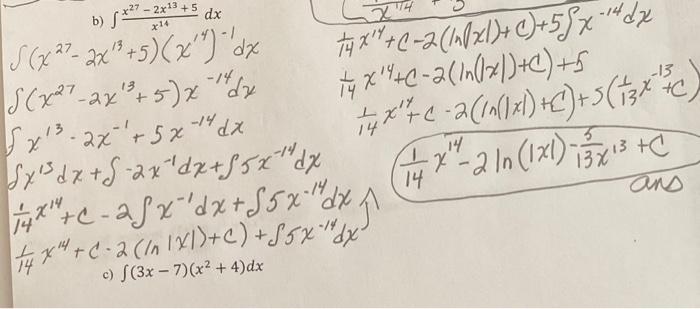 b) ∫ (x²⁷ − 2x¹³ + 5)/x¹⁴ dx
∫(x²⁷ - 2x¹³ + 5)(x¹⁴)⁻¹ dx
∫(x²⁷ - 2x¹³ + 5)x⁻¹⁴ dx
∫x¹³ - 2x⁻¹ + 5x⁻¹⁴ dx
∫x¹³dx + ∫-2x⁻¹dx + ∫5x⁻¹⁴dx
1/14 x¹⁴ + C - 2∫x⁻¹dx + ∫5x⁻¹⁴dx
1/14 x¹⁴ + C - 2(ln|x|) + C) + ∫5x⁻¹⁴dx
1/14 x¹⁴ + C - 2(ln(|x|) + C) + 5∫x⁻¹⁴dx
1/14 x¹⁴ + C - 2(ln(|x|) + C) + 5
1/14 x¹⁴ + C - 2(ln(|x|) + C) + 5(1/13 x⁻¹³ + C)
1/14 x¹⁴ - 2 ln(|x|) - 5/13 x¹³ + C
ans
c) ∫(3x − 7)(x² + 4)dx